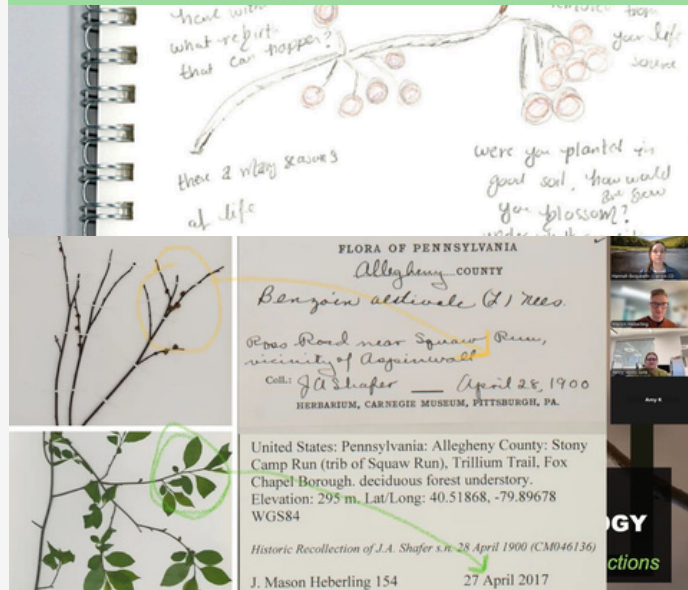 what rebirth
that can happen?
from
your life
there a many seasons
of life
were you planted in
good soil, how would
you blossom?
FLORA OF PENNSYLVANIA
Allegheny COUNTY
Benzoin aestivale (L) Nees.
Ross Road near Squaw Run,
vicinity of Aspinwall
Coll.: J A Shafer — April 28, 1900
HERBARIUM, CARNEGIE MUSEUM, PITTSBURGH, PA.
United States: Pennsylvania: Allegheny County: Stony
Camp Run (trib of Squaw Run), Trillium Trail, Fox
Chapel Borough. deciduous forest understory.
Elevation: 295 m. Lat/Long: 40.51868, -79.89678
WGS84
Historic Recollection of J.A. Shafer s.n. 28 April 1900 (CM046136)
J. Mason Heberling 154 27 April 2017
Amy K
OGY
ctions